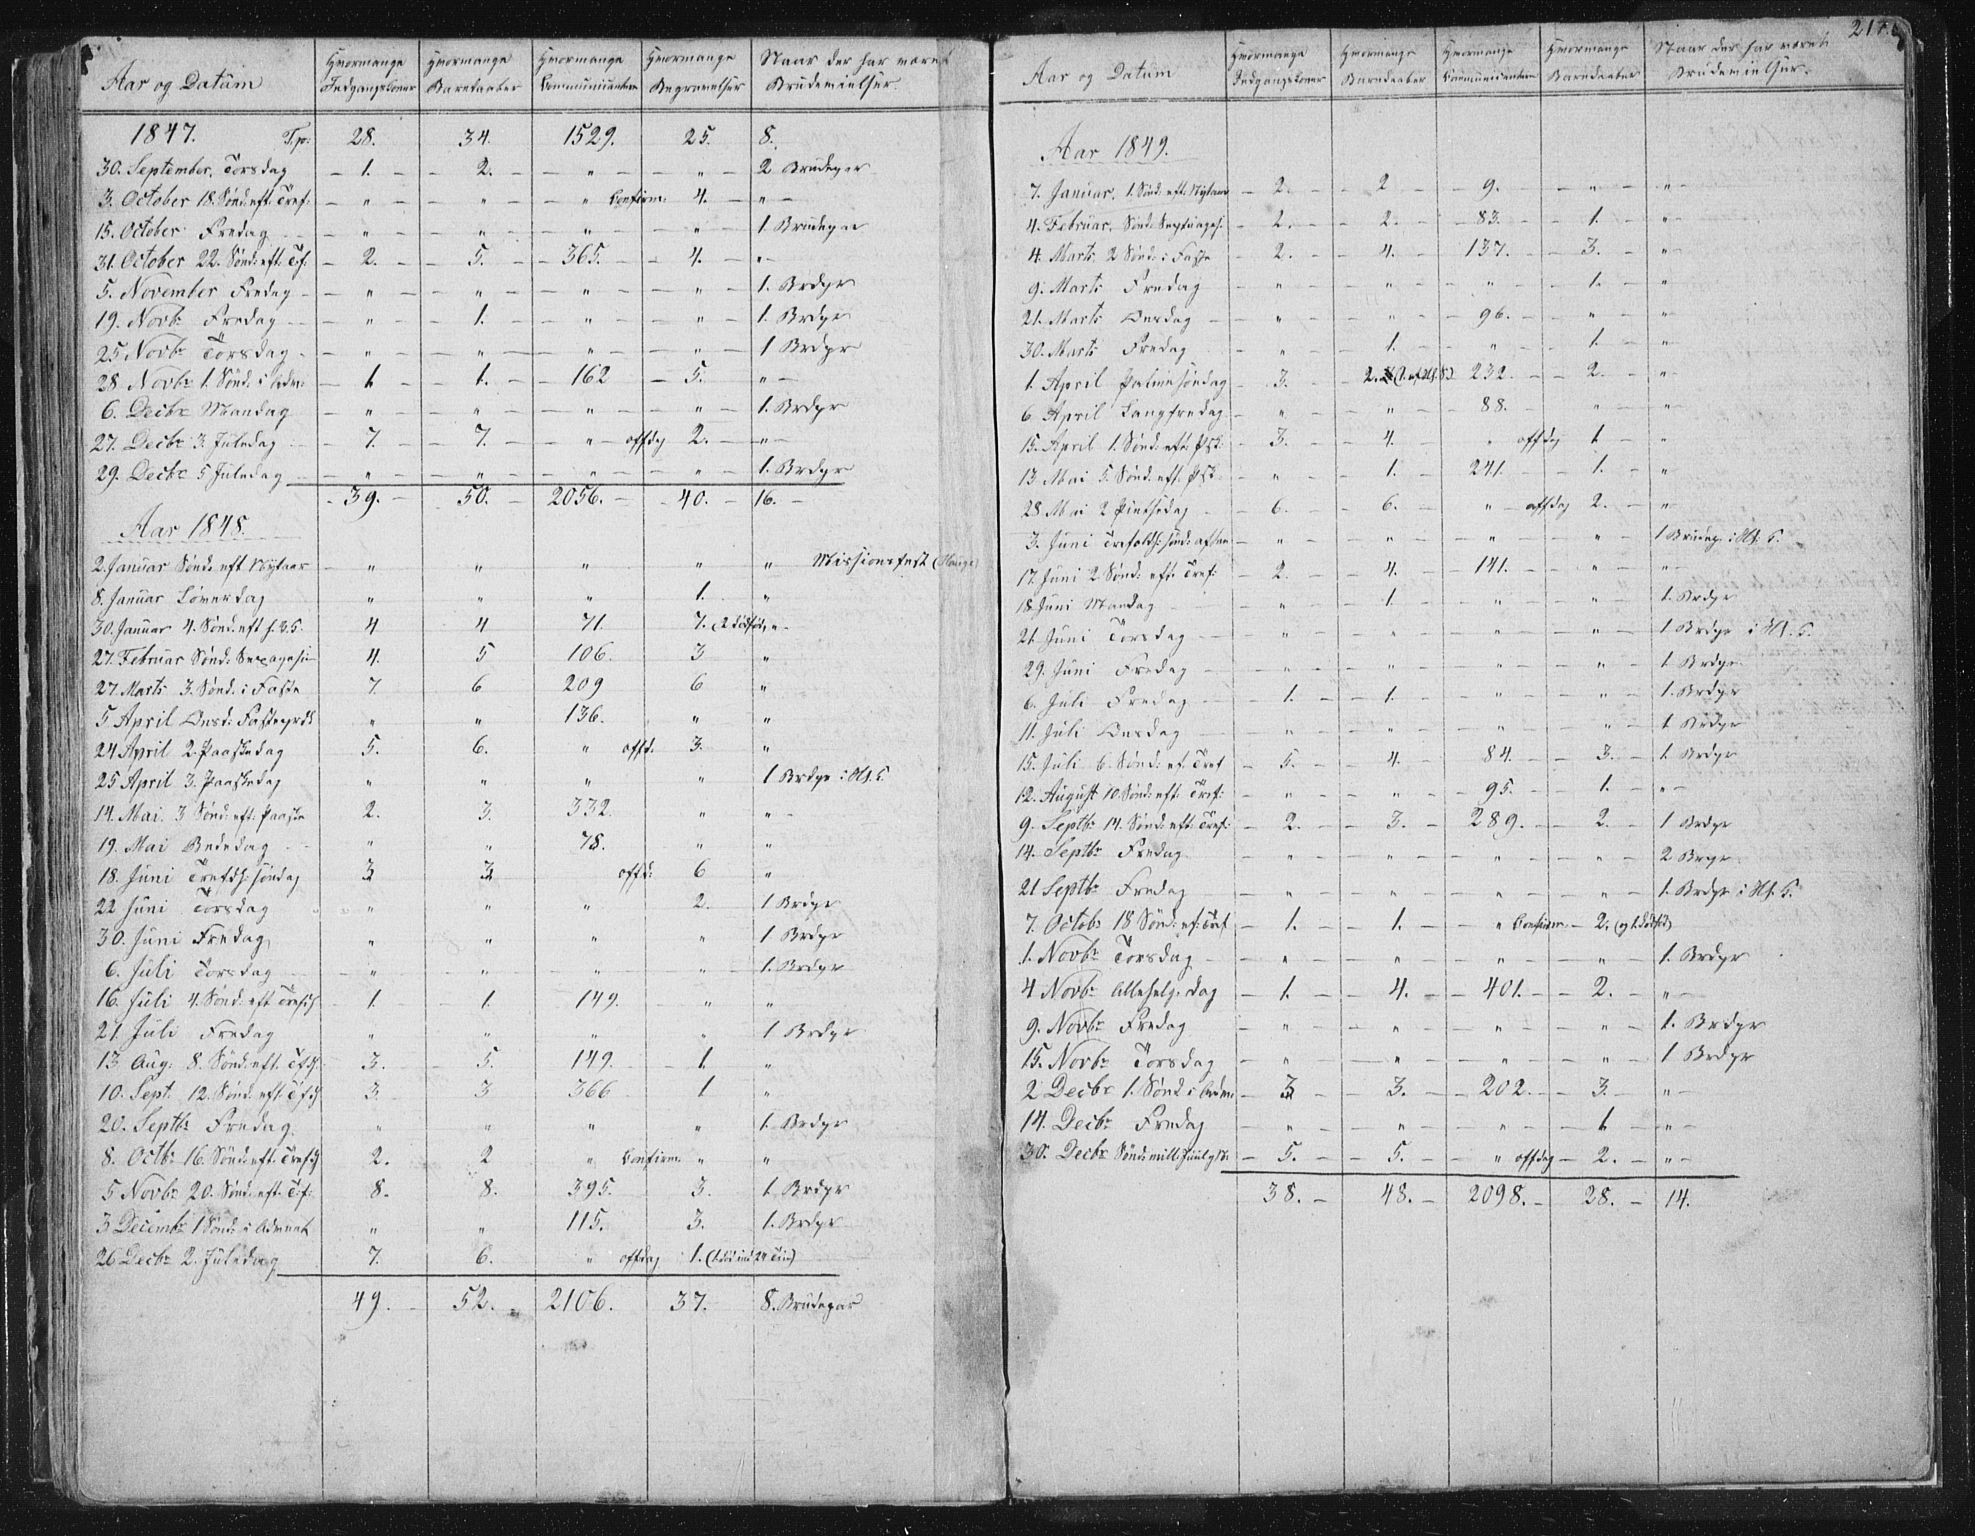 Aar og Datum | Hvormange Indgangskoner | Hvormange Barnedaaber | Hvormange Communicanter | Hvormange Begravelser | Naar der har været Brudevielser.
1847. Tsp: 28. 34. 1529. 25. 8.
30. September, Torsdag - 1. - 2. - " - " - 2 Brudepar
3. October 18. Sønd: eft: Tref: - " - " - " Confirm: 4. - " -
15. October Fredag - " - " - " - " - 1 Brudepar
31. October 22. Sønd: eft: T.f: - 2. - 5. - 365. - 4. - " -
5. November Fredag - " - " - " - " - 1. Brdpr
19. Novbr Fredag - " - 1. - " - " - 1. Brdpr
25 Novbr Torsdag - " - " - " - " - 1 Brdpr
28. Novbr 1. Sønd: i Adv: - 1 - 1. - 162 - 5. - " -
6. Decbr Mandag - " - " - " - " - 1. Brdpr
27. Decbr 3. Juledag - 7. - 7. - " offdg 2. - " -
29. Decbr 5 Juledag - " - " - " - " - 1. Brdpr
39. - 50. - 2056. - 40. - 16. -
Aar 1848.
2. Januar Sønd: eft Nytaar - " " " " " Missionsfest (Hauge)
8. Januar Løverdag " " " 1. "
30. Januar 4. Sønd. eft h. 3. K. 4 4 71. 7. (2 dødfød) " -
27. Februar Sønd: Sexagesi- 4. 5 106. 3 "
27. Marts 3. Sønd: i Faste 7. 6 209 6 "
5 April Onsd: Fasteprdk " " 136. " "
24 April 2. Paaskedag 5. 6. " offd. 3. "
25 April 3. Paaskedag " " " " 1 Brdpr i Hl. K.
14. Mai. 3 Sønd: eft: Paaske 2. 3. 332. " " -
19. Mai Bededag " " 78. " "
18. Juni Trefdh: søndag 3 3 offd: 6 "
22 Juni Torsdag " " " 2. 1 Brdpr
30. Juni Fredag " " " " 1. Brdpr
6. Juli Torsdag - " - " - " - " - 1. Brdpr
16. Juli 4. Sønd: eft Trefdh 1. 1. 149. " "
21. Juli Fredag " " " " 1 Brdpr
13 Aug: 8. Sønd: eft: Tfdh. 3. 5. 149. 1. "
10. Sept. 12. Sønd: eft Tfdh 3. 3 366 1 "
20. Septbr Fredag " " " " 1. Brdpr
8. Octbr 16. Sønd: eft: Trefdh 2. 2 " Confirm: " "
5 Novbr 20. Sønd: eft: T.f: 8. 8. 395. 3. 1. Brdpr
3 Decembr 1 Sønd: i Advent " " 115. 3. 1. Brdpr
26 Decbr 2. Juledag 7. 6. " offdag 1.
49. - 52. 2106. 37. 8. Brudepar
217.
Aar og Datum | Hvormange Indgangskoner | Hvormange Barnedaaber | Hvormange Communicanter | Hvormange Barnedaaber | Naar der har været Brudevielser.
Aar 1849.
7. Januar. 1. Sønd. eft: Nytaar - 2. - 2 - 9. - " - " -
4. Februar. Sønd: Septuages: - 2. - 2. - 83. - 1. - " -
4. Marts 2 Sønd: i Faste - 2. - 4. - 137. - 3. - " -
9. Marts Fredag - " - " - " - 1. - "
21. Marts Onsdag - " - " - 96. - " - " -
30. Marts Fredag - " - 1. - " - 1. - "
1. April Palmesøndag - 3. - 2. 232. - 2. - " -
6 April Langfredag - " - " - 88. - " - " -
15. April 1. Sønd: eft: Psk. - 3. - 4. - " offdg 1. - "
13 Mai 5. Sønd: eft: Psk. - " - 1. - 241. - 1. - "
28 Mai 2 Pintsedag - 6. - 6. - " - offdag 2. - " -
3. Juni Trefoldh: sønd: aften - " - " - " - " - 1 Brudep. i Hl. K.
17. Juni 2. Sønd: eft: Tref: - 2. - 4. - 141. - " - " -
18. Juni Mandag - " - 1. - " - " - 1. Brdpr
21. Juni Torsdag - " - " - " - " - 1 Brdpr i Hl. K.
29. Juni Fredag - " - " - " - " - 1. Brdpr
6. Juli Fredag - 1. - 1. - " - " - 1. Brdpr
11. Juli Onsdag - " - " - " - " - 1. Brdpr
15. Juli 6. Sønd: ef. Tref - 5. - 4. - 84. - 3. - 1. Brdpr
12. August 10. Sønd: eft: Tref: - " - " - 95. - 1. - " -
9. Septbr 14. Sønd: eft: Tref: - 2. - 3. - 289. - 2. - 1 Brdpr
14. Septbr Fredag - " - " - " - " - 2 Brpr
21 Septbr Fredag - " - " - " - " - 1. Brdpr i Hl. K.
7. Octobr 18 Sønd: ef: Tref - 1. - 1. - " Confirm - 2. (og 1. dødfød)
1. Novbr Torsdag - " - " - " - " - 1. Brdpr
4 Novbr Allehelg. dag - 1. - 4. - 401. - 2. - " -
9. Novbr Fredag - " - " - " - " - 1. Brdpr
15. Novbr Torsdag - " - " - " - " - 1 Brdpr
2 Decbr 1. Sønd i Adv: - 3 - 3. - 202. - 3. - " -
14. Decbr Fredag - " - " - " - 1 - " -
30. Decbr Sønd: mill: Juul og N. - 5. - 5. - " offdag - 2. - " -
38. - 48. - 2098. - 28. - 14.